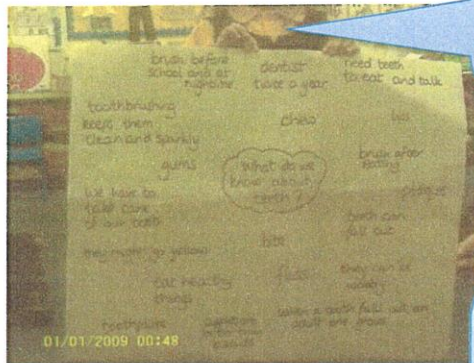 brush before
school and at
nightime
dentist
twice a year
need teeth
to eat and talk
toothbrushing
keeps them
clean and sparkly
chew
gums
What do we
know about
teeth?
brush after
eating
plaque
We have to
take care
of our teeth
teeth can
fall out
they might go yellow
bite
eat healthy
things
floss
they can be
wobbly
toothpaste
when a tooth falls out an
adult one grows
01/01/2009 00:48